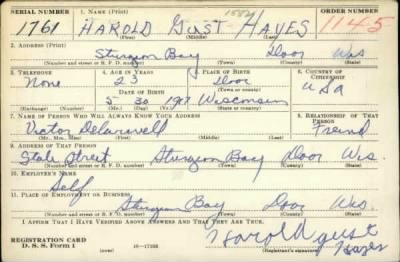 SERIAL NUMBER 1. NAME (Print) ORDER NUMBER
1761 HAROLD GUST HAYES 1145
(First) (Middle) (Last)
2. ADDRESS (Print)
Sturgeon Bay Door Wis
(Number and street or R. F. D. number) (Town) (County) (State)
3. TELEPHONE 4. AGE IN YEARS 5. PLACE OF BIRTH 6. COUNTRY OF CITIZENSHIP
None 23 Door USa
DATE OF BIRTH
5 30 1917 Wisconsin
(Exchange) (Number) (Mo.) (Day) (Yr.) (State or country)
7. NAME OF PERSON WHO WILL ALWAYS KNOW YOUR ADDRESS 8. RELATIONSHIP OF THAT PERSON
Victor Freind
(Mr., Mrs., Miss) (First) (Middle) (Last)
9. ADDRESS OF THAT PERSON
State Street Sturgeon Bay Door Wis.
(Number and street or R. F. D. number) (Town) (County) (State)
10. EMPLOYER'S NAME
Self
11. PLACE OF EMPLOYMENT OR BUSINESS
Sturgeon Bay Door Wis.
(Number and street or R. F. D. number) (Town) (County) (State)
I AFFIRM THAT I HAVE VERIFIED ABOVE ANSWERS AND THAT THEY ARE TRUE.
REGISTRATION CARD
D. S. S. Form 1 (over) 16—17105 Harold gust
(Registrant's signature) Hayes